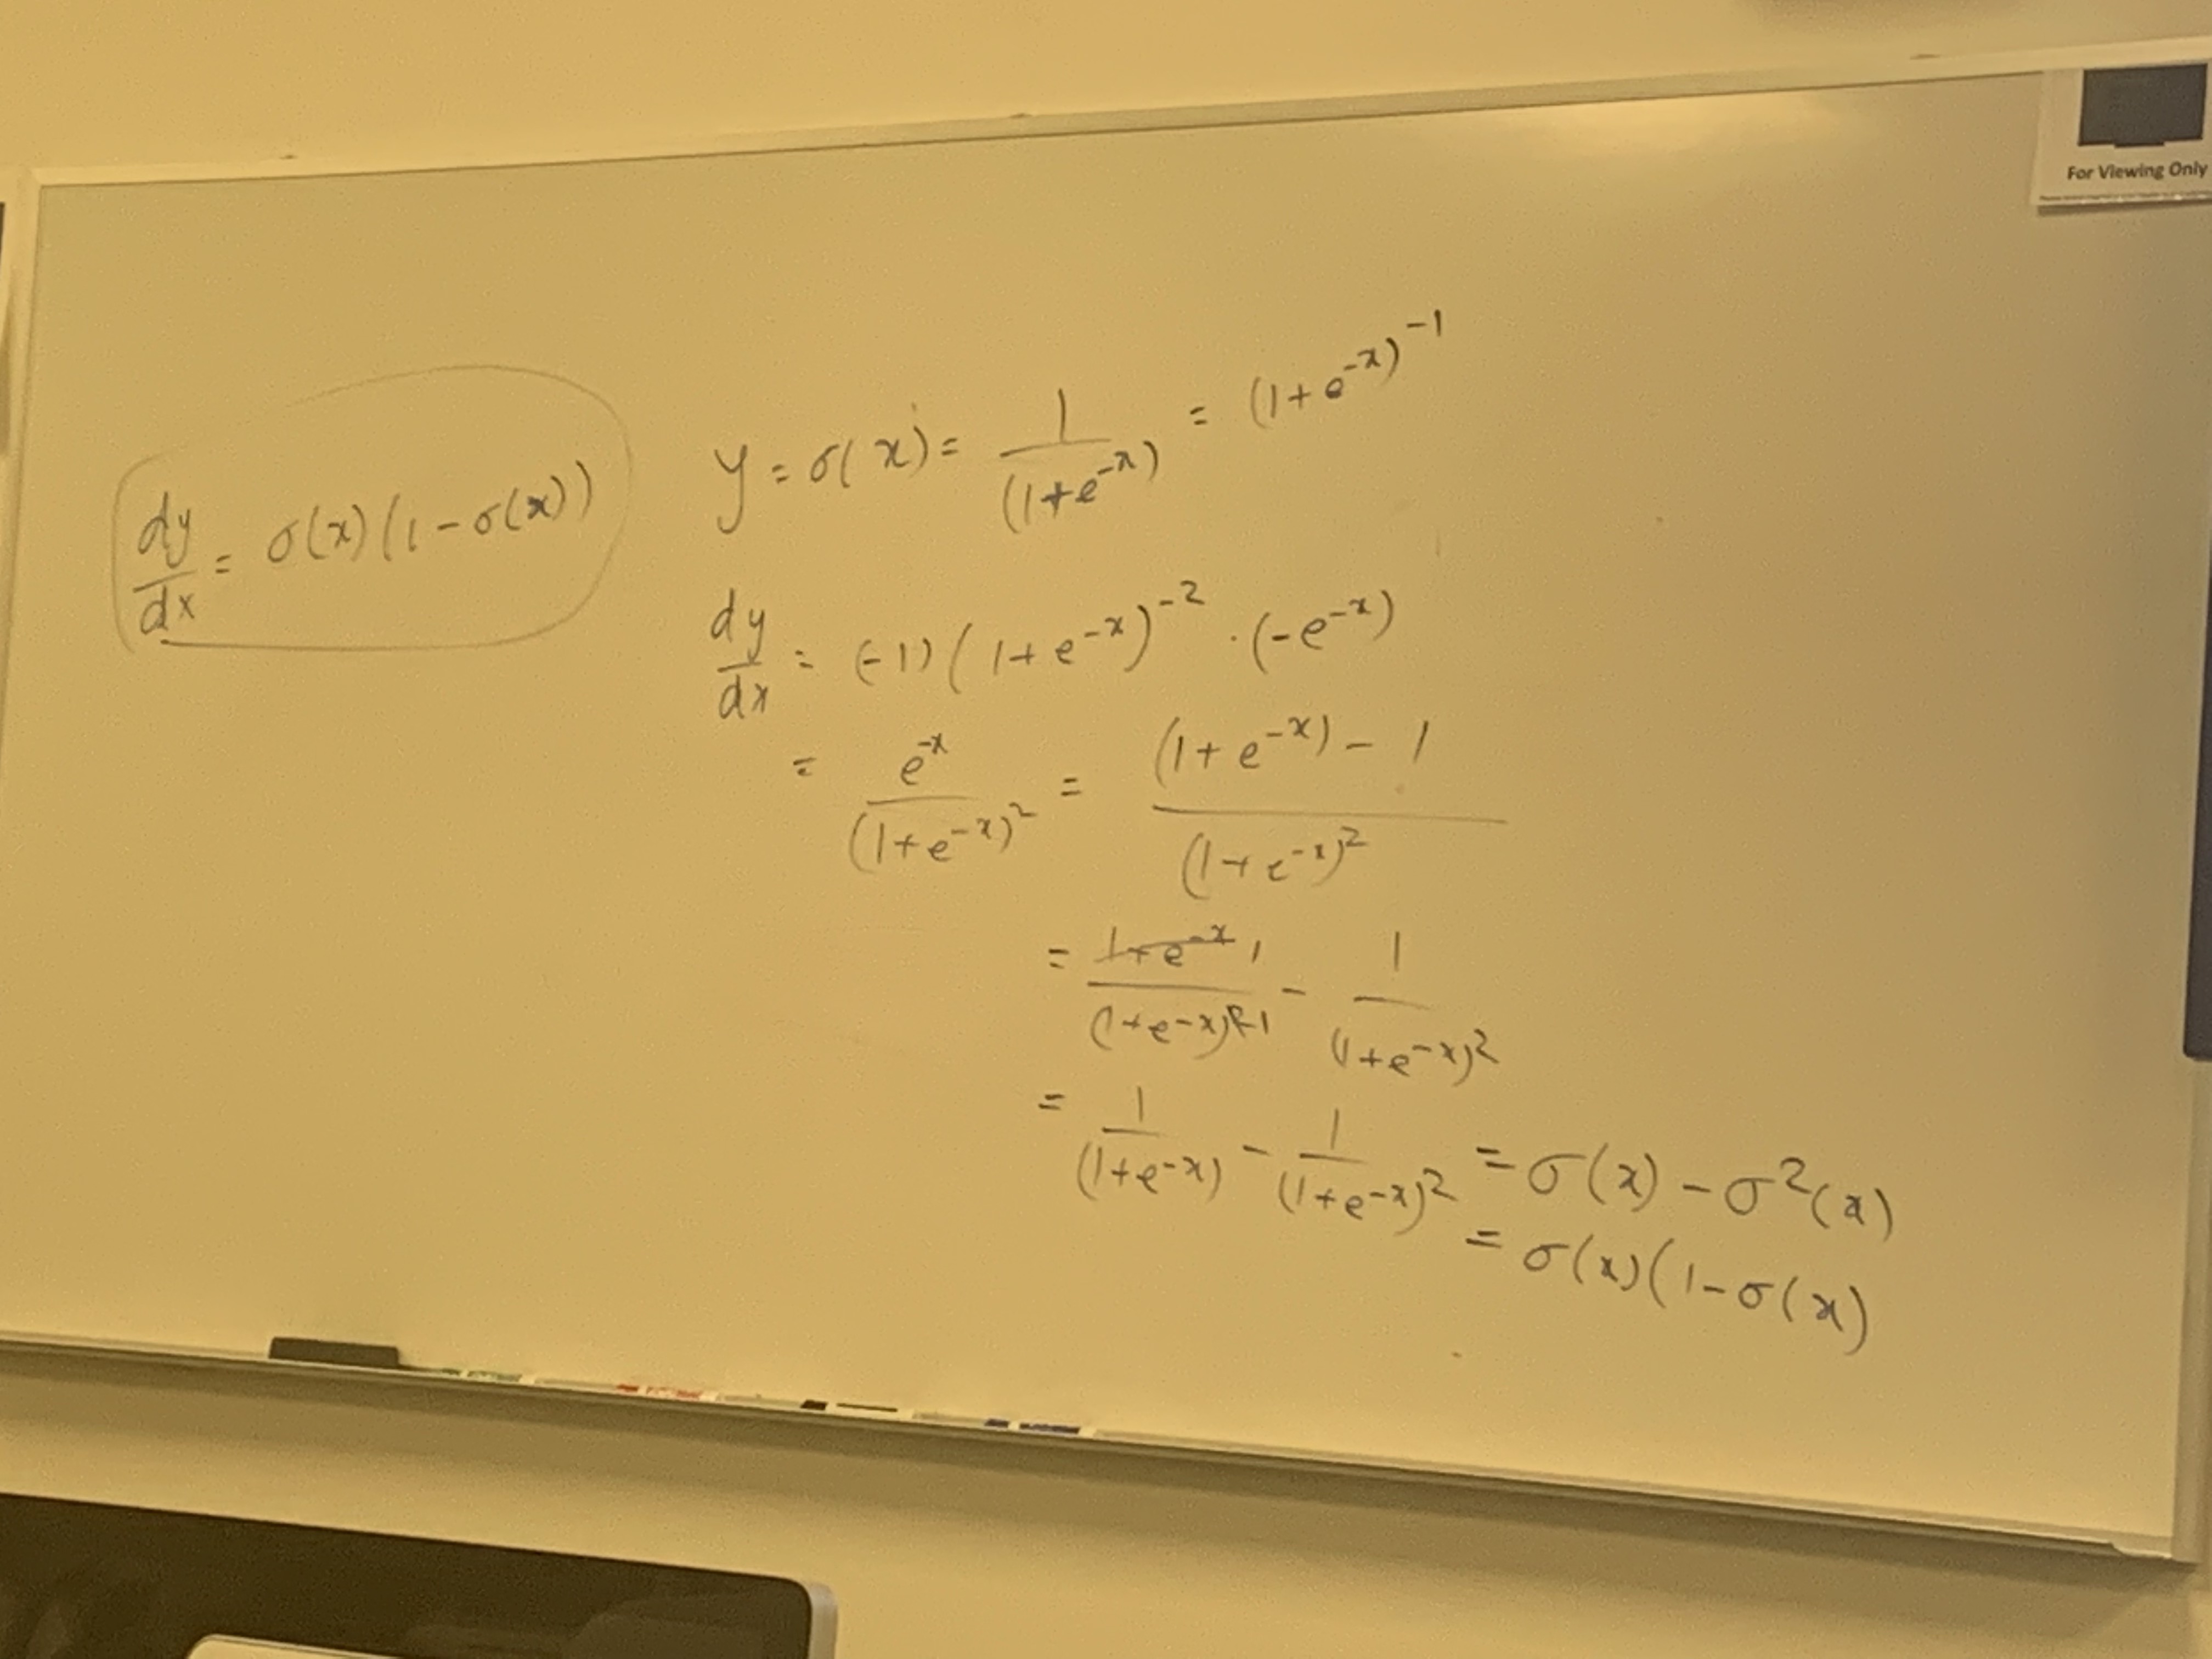 For Viewing Only
dy/dx = σ(x)(1-σ(x))
y = σ(x) = 1/(1+e^-x) = (1+e^-x)^-1
dy/dx = (-1)(1+e^-x)^-2 · (-e^-x)
= e^-x/(1+e^-x)^2 = (1+e^-x) - 1/(1+e^-x)^2
= 1+e^-x 1/(1+e^-x)^2-1 - 1/(1+e^-x)^2
= 1/(1+e^-x) - 1/(1+e^-x)^2 = σ(x) - σ^2(x)
= σ(x)(1-σ(x)